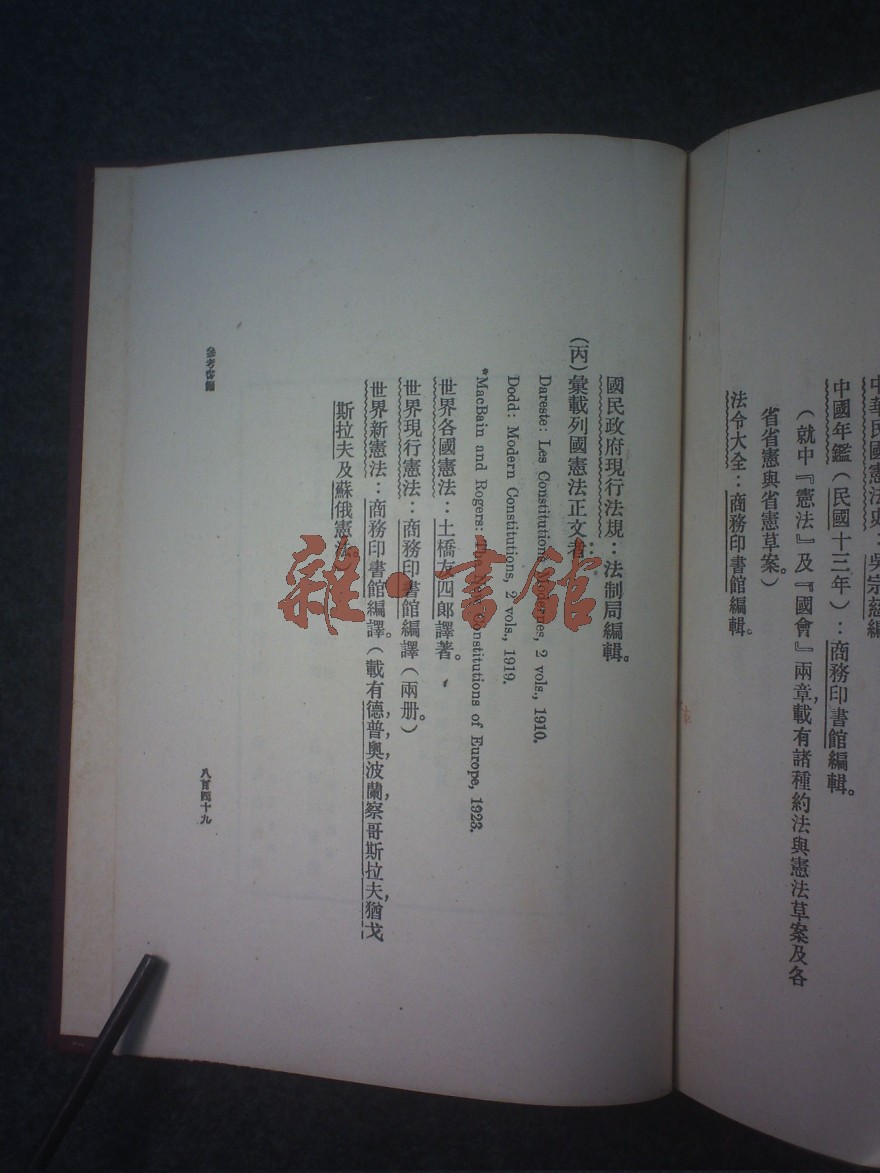 中華民國憲法史：吳宗慈編
中國年鑑（民國十三年）：商務印書館編輯。
（就中『憲法』及『國會』兩章，載有諸種約法與憲法草案及各
省省憲與省憲草案。）
法令大全：商務印書館編輯。
國民政府現行法規：法制局編輯。
(丙)彙載列國憲法正文者：
Dareste: Les Constitutions Modernes, 2 vols., 1910.
Dodd: Modern Constitutions, 2 vols., 1919.
*MacBain and Rogers: The New Constitutions of Europe, 1923.
世界各國憲法：土橋友四郎譯著。
世界現行憲法：商務印書館編譯（兩册。）
世界新憲法：商務印書館編譯。（載有德，普，奧，波蘭，察哥斯拉夫，猶戈
斯拉夫及蘇俄憲法。）
參考書錄
八百四十九
雜·書館